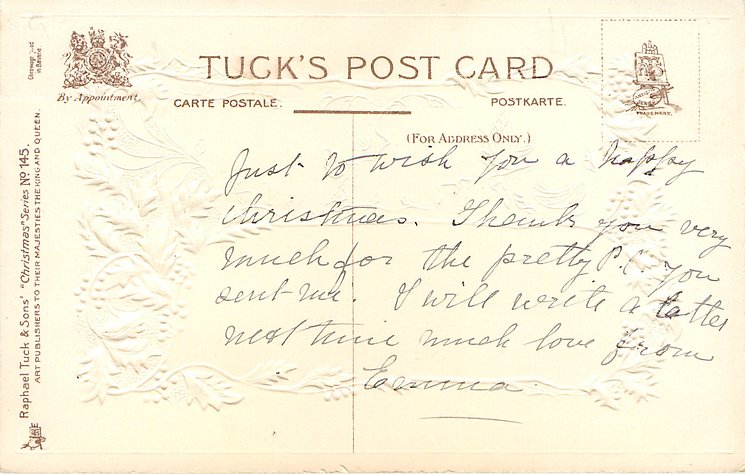 Chromographed in Bavaria
By Appointment.
TUCK'S POST CARD
CARTE POSTALE.
POSTKARTE.
(FOR ADDRESS ONLY.)
TRADE MARK.
Raphael Tuck & Sons' "Christmas" Series No 145.
ART PUBLISHERS TO THEIR MAJESTIES THE KING AND QUEEN.
Just to wish you a happy
Christmas. Thank you very
much for the pretty P.C. you
sent me. I will write a letter
next time much love from
Emma